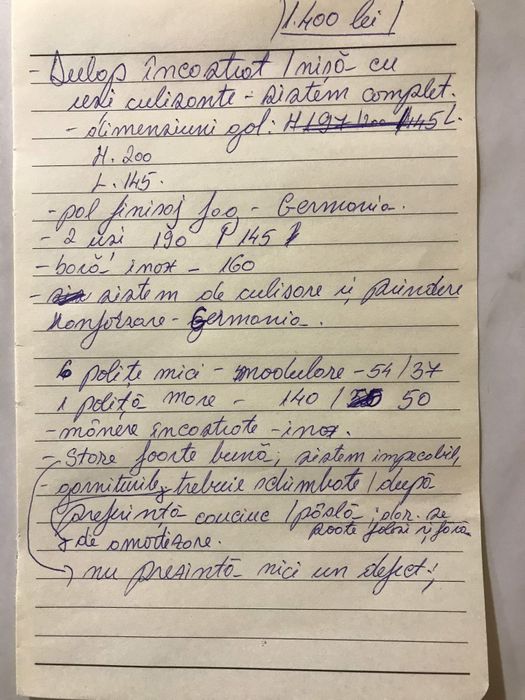 1.400 lei
- Dulap încastrat / nișă cu
uși culisante - sistem complet.
- dimensiuni gol: H 197/200 / 145 L.
H. 200
L. 145.
- pal finisaj fag - Germania.
- 2 uși 190 / 145
- bară inox - 160
- sistem de culisare și prindere
Germania.
6 polițe mici - modulare - 54/37
1 poliță mare - 140 / 50
- mânere încastrate - inox.
- Stare foarte bună, sistem impecabil,
- garniturile trebuie schimbate / după
preferință cauciuc / pâslă; dar se
poate folosi și fără
de amortizare.
nu prezintă nici un defect;